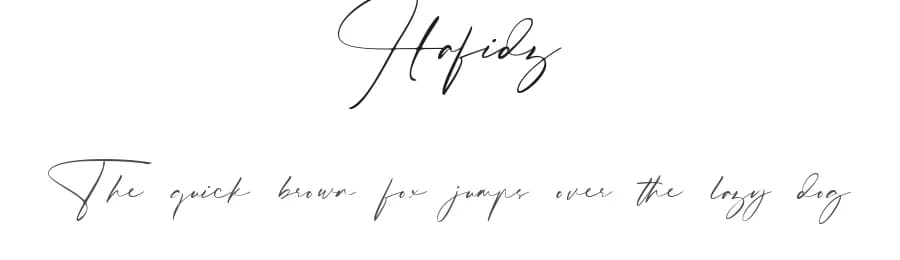 Hafidz
The quick brown fox jumps over the lazy dog